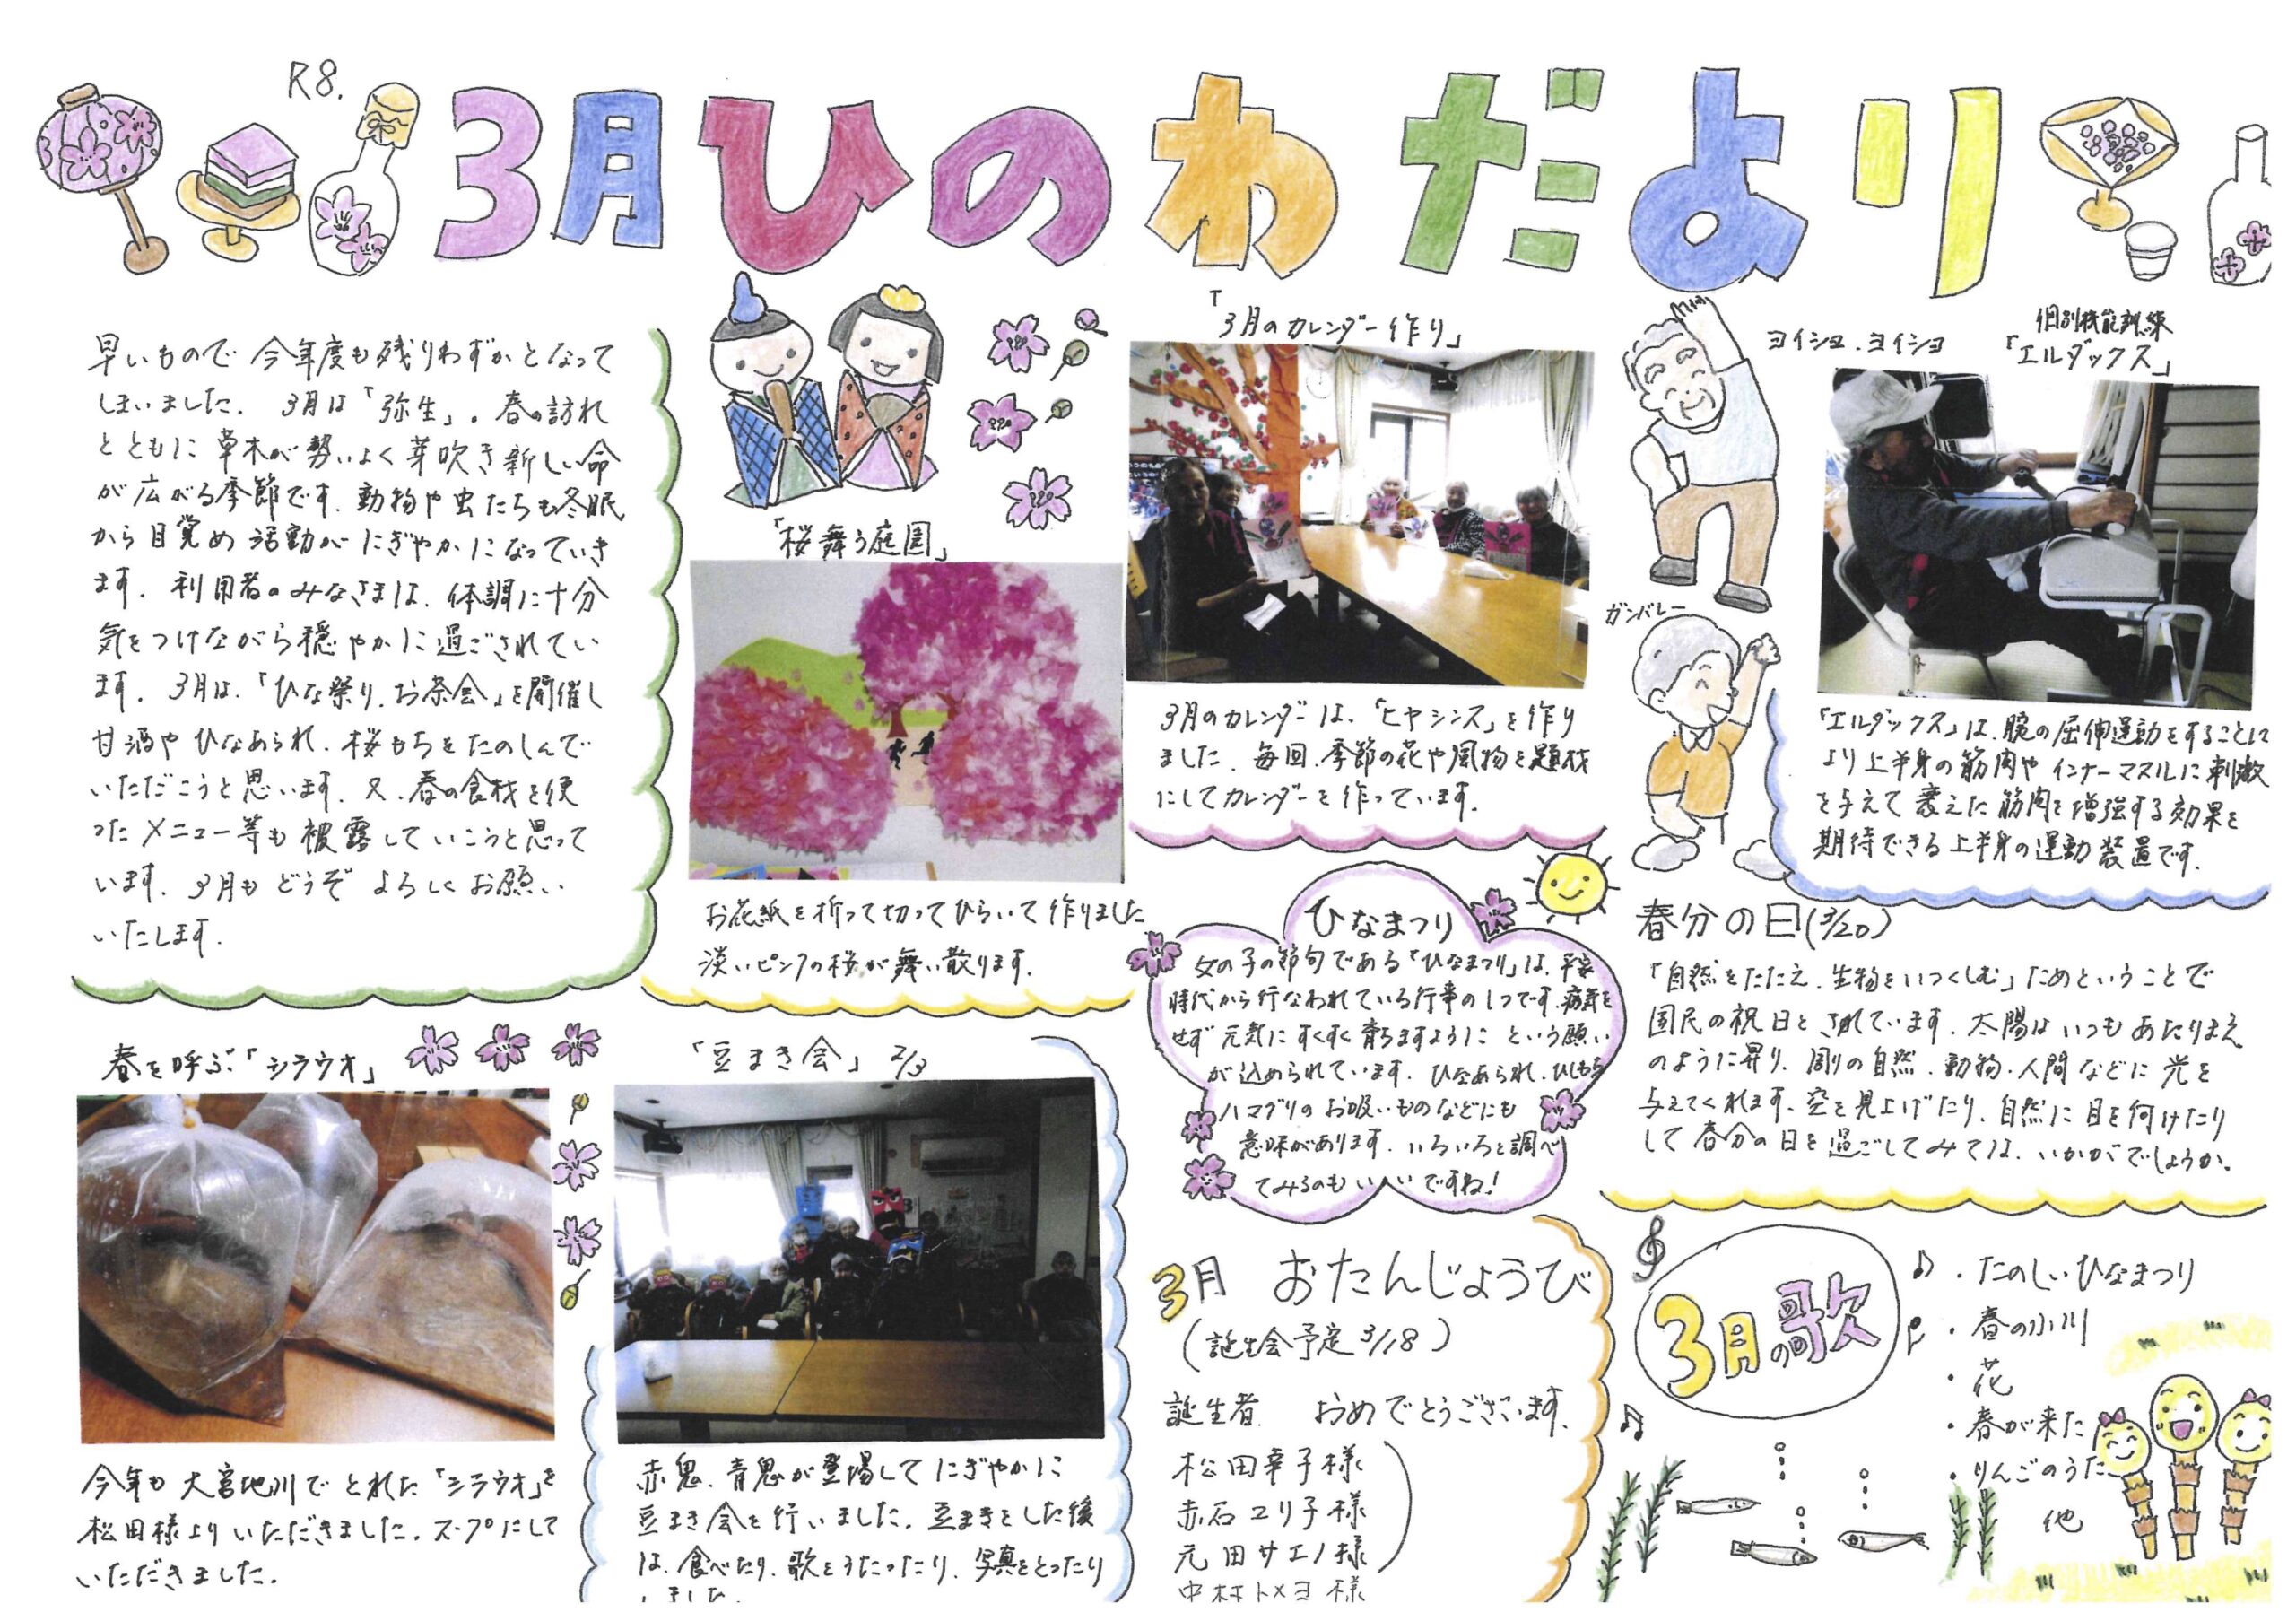 R8.
3月ひのわだより
早いもので 今年度も残りわずかとなって
しまいました. 3月は「弥生」。春の訪れ
とともに草木が勢いよく芽吹き新しい命
が広がる季節です. 動物や虫たちも冬眠
から目覚め 活動がにぎやかになっていき
ます. 利用者のみなさまは、体調に十分
気をつけながら穏やかに過ごされてい
ます. 3月は、「ひな祭り、お茶会」を開催し
甘酒や ひなあられ、桜もちをたのしんで
いただこうと思います. 又、春の食材を使
ったメニュー等も披露していこうと思って
います. 3月も どうぞ よろしく お願い
いたします.
「桜舞う庭園」
お花紙を折って切ってひらいて作りました
淡いピンクの桜が舞い散ります.
「3月のカレンダー作り」
3月のカレンダーは、「ヒヤシンス」を作り
ました. 毎回、季節の花や風物を題材
にしてカレンダーを作っています.
ヨイショ、ヨイショ
個別機能訓練
「エルダックス」
ガンバレー
「エルダックス」は、腕の屈伸運動をすることに
より上半身の筋肉や インナーマスルに刺激
を与えて 衰えた筋肉を増強する効果を
期待できる上半身の運動装置です.
ひなまつり
女の子の節句である「ひなまつり」は、平安
時代から行なわれている行事の1つです. 病気を
せず 元気に すくすく育ちますように という願い
が込められています. ひなあられ、ひしもち
ハマグリの お吸いものなどにも
意味があります. いろいろと調べ
てみるのも いいですね!
春分の日(3/20)
「自然をたたえ、生物をいつくしむ」ためということで
国民の祝日と されています. 太陽は いつも あたりまえ
のように昇り、周りの自然、動物・人間などに 光を
与えてくれます. 空を見上げたり、自然に目を向けたり
して春分の日を過ごしてみては、いかがでしょうか.
春を呼ぶ「シラウオ」
今年も 大宮地川でとれた「シラウオ」を
松田様より いただきました. スープにして
いただきました.
「豆まき会」 2/3
赤鬼、青鬼が登場して にぎやかに
豆まき会を行いました. 豆まきをした後
は、食べたり、歌をうたったり、写真をとったり
しました.
3月 おたんじょうび
(誕生会予定 3/18)
誕生者 おめでとうございます.
松田幸子様
赤石ユリ子様
元田サエノ様
中村トメヨ様
3月の歌
・たのしいひなまつり
・春の小川
・花
・春が来た
・りんごのうた
他